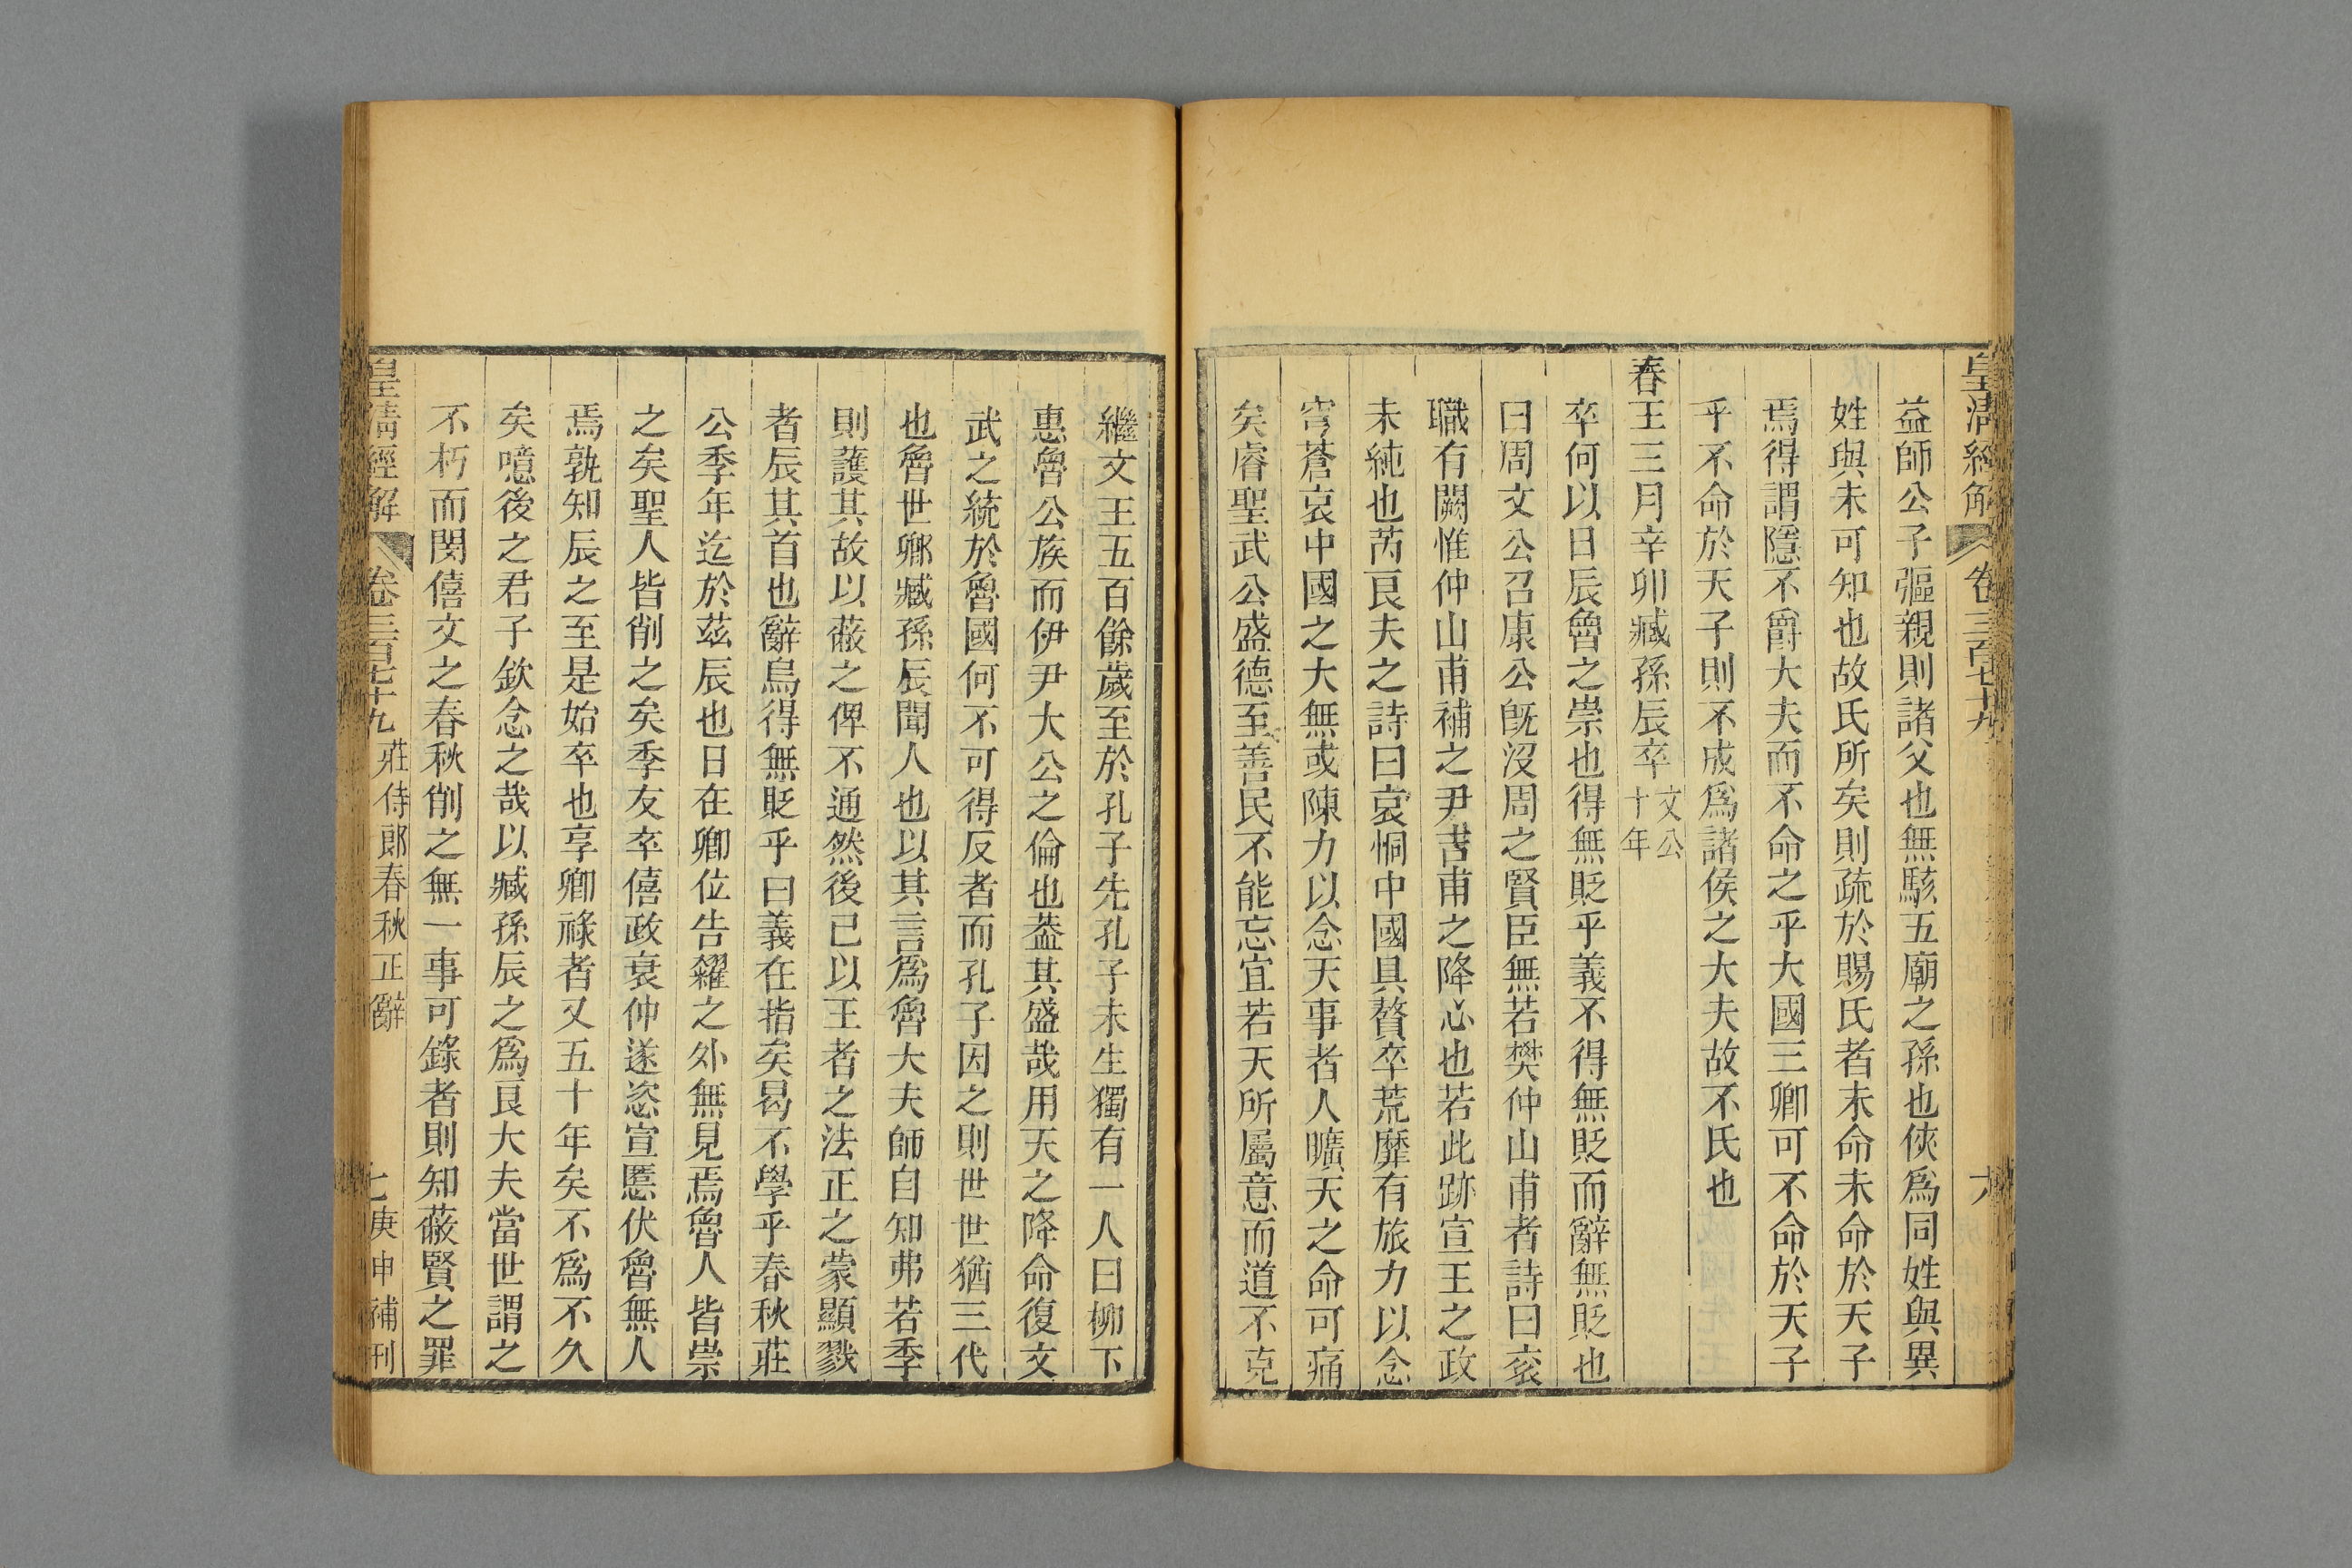 皇清經解 卷三百七十九 六
益師公子彄親則諸父也無駭五廟之孫也俠爲同姓與異
姓與未可知也故氏所矣則疏於賜氏者未命未命於天子
焉得謂隱不爵大夫而不命之乎大國三卿可不命於天子
乎不命於天子則不成爲諸侯之大夫故不氏也
春王三月辛卯臧孫辰卒文公十年
卒何以日辰魯之崇也得無貶乎義不得無貶而辭無貶也
曰周文公召康公旣沒周之賢臣無若樊仲山甫者詩曰衮
職有闕惟仲山甫補之尹吉甫之降心也若此跡宣王之政
未純也芮良夫之詩曰哀恫中國具贅卒荒靡有旅力以念
穹蒼哀中國之大無或陳力以念天事者人曠天之命可痛
矣睿聖武公盛德至善民不能忘宜若天所屬意而道不克
繼文王五百餘歲至於孔子先孔子未生獨有一人曰柳下
惠魯公族而伊尹大公之倫也葢其盛哉用天之降命復文
武之統於魯國何不可得反者而孔子因之則世世猶三代
也魯世卿臧孫辰聞人也以其言爲魯大夫師自知弗若季
則護其故以蔽之俾不通然後已以王者之法正之蒙顯戮
者辰其首也辭烏得無貶乎曰義在指矣曷不學乎春秋莊
公季年迄於茲辰也日在卿位告糴之外無見焉魯人皆崇
之矣聖人皆削之矣季友卒僖政衰仲遂恣宣慝伏魯無人
焉孰知辰之至是始卒也享卿祿者又五十年矣不爲不久
矣噫後之君子欽念之哉以臧孫辰之爲良大夫當世謂之
不朽而閔僖文之春秋削之無一事可錄者則知蔽賢之罪
皇清經解 卷三百七十九 莊侍郎春秋正辭 七 庚申補刊